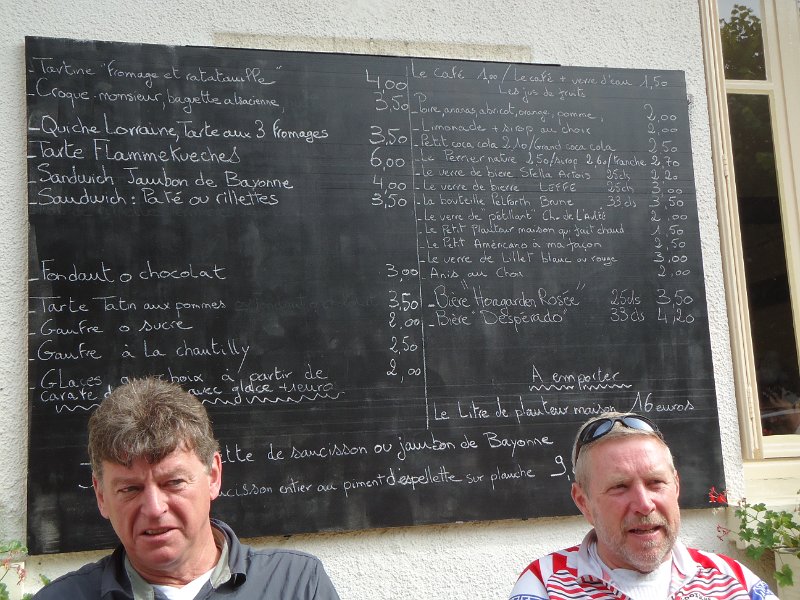 Tartine "fromage et ratatouille" 4,00
Croque-monsieur, baguette alsacienne, 3,50
Quiche Lorraine, Tarte aux 3 fromages 3,50
Tarte Flammekueches 6,00
Sandwich Jambon de Bayonne 4,00
Sandwich : Paté ou rillettes 3,50
Fondant o chocolat 3,00
Tarte Tatin aux pommes 3,50
Gaufre o sucre 2,00
Gaufre à la chantilly 2,50
Glaces au choix à partir de 2,00
carafe avec glace + 1 euro
Le café 1,00 / Le café + verre d'eau 1,50
Les jus de fruits
Poire, ananas, abricot, orange, pomme, 2,00
Limonade + sirop au choix 2,00
Petit coca cola 2,10 / Grand coca cola 2,50
Le Perrier nature 2,50 / sirop 2,60 / tranche 2,70
Le verre de bière Stella Artois 25cl 2,20
Le verre de bierre LEFFE 25cl 3,00
La bouteille Pelforth Brune 33 cls 3,50
Le verre de "pétillant" Ch. de L'Aulée 2,00
Le Petit Planteur maison qui fait chaud 1,50
Le Petit Américano à ma façon 2,50
Le verre de Lillet blanc ou rouge 3,00
Anis au Choix 2,00
Bière "Hoagarden Rosée" 25cls 3,50
Bière "Desperado" 33cls 4,20
A emporter
Le Litre de planteur maison 16 euros
de saucisson ou jambon de Bayonne
entier au piment d'espellette sur planche 9,